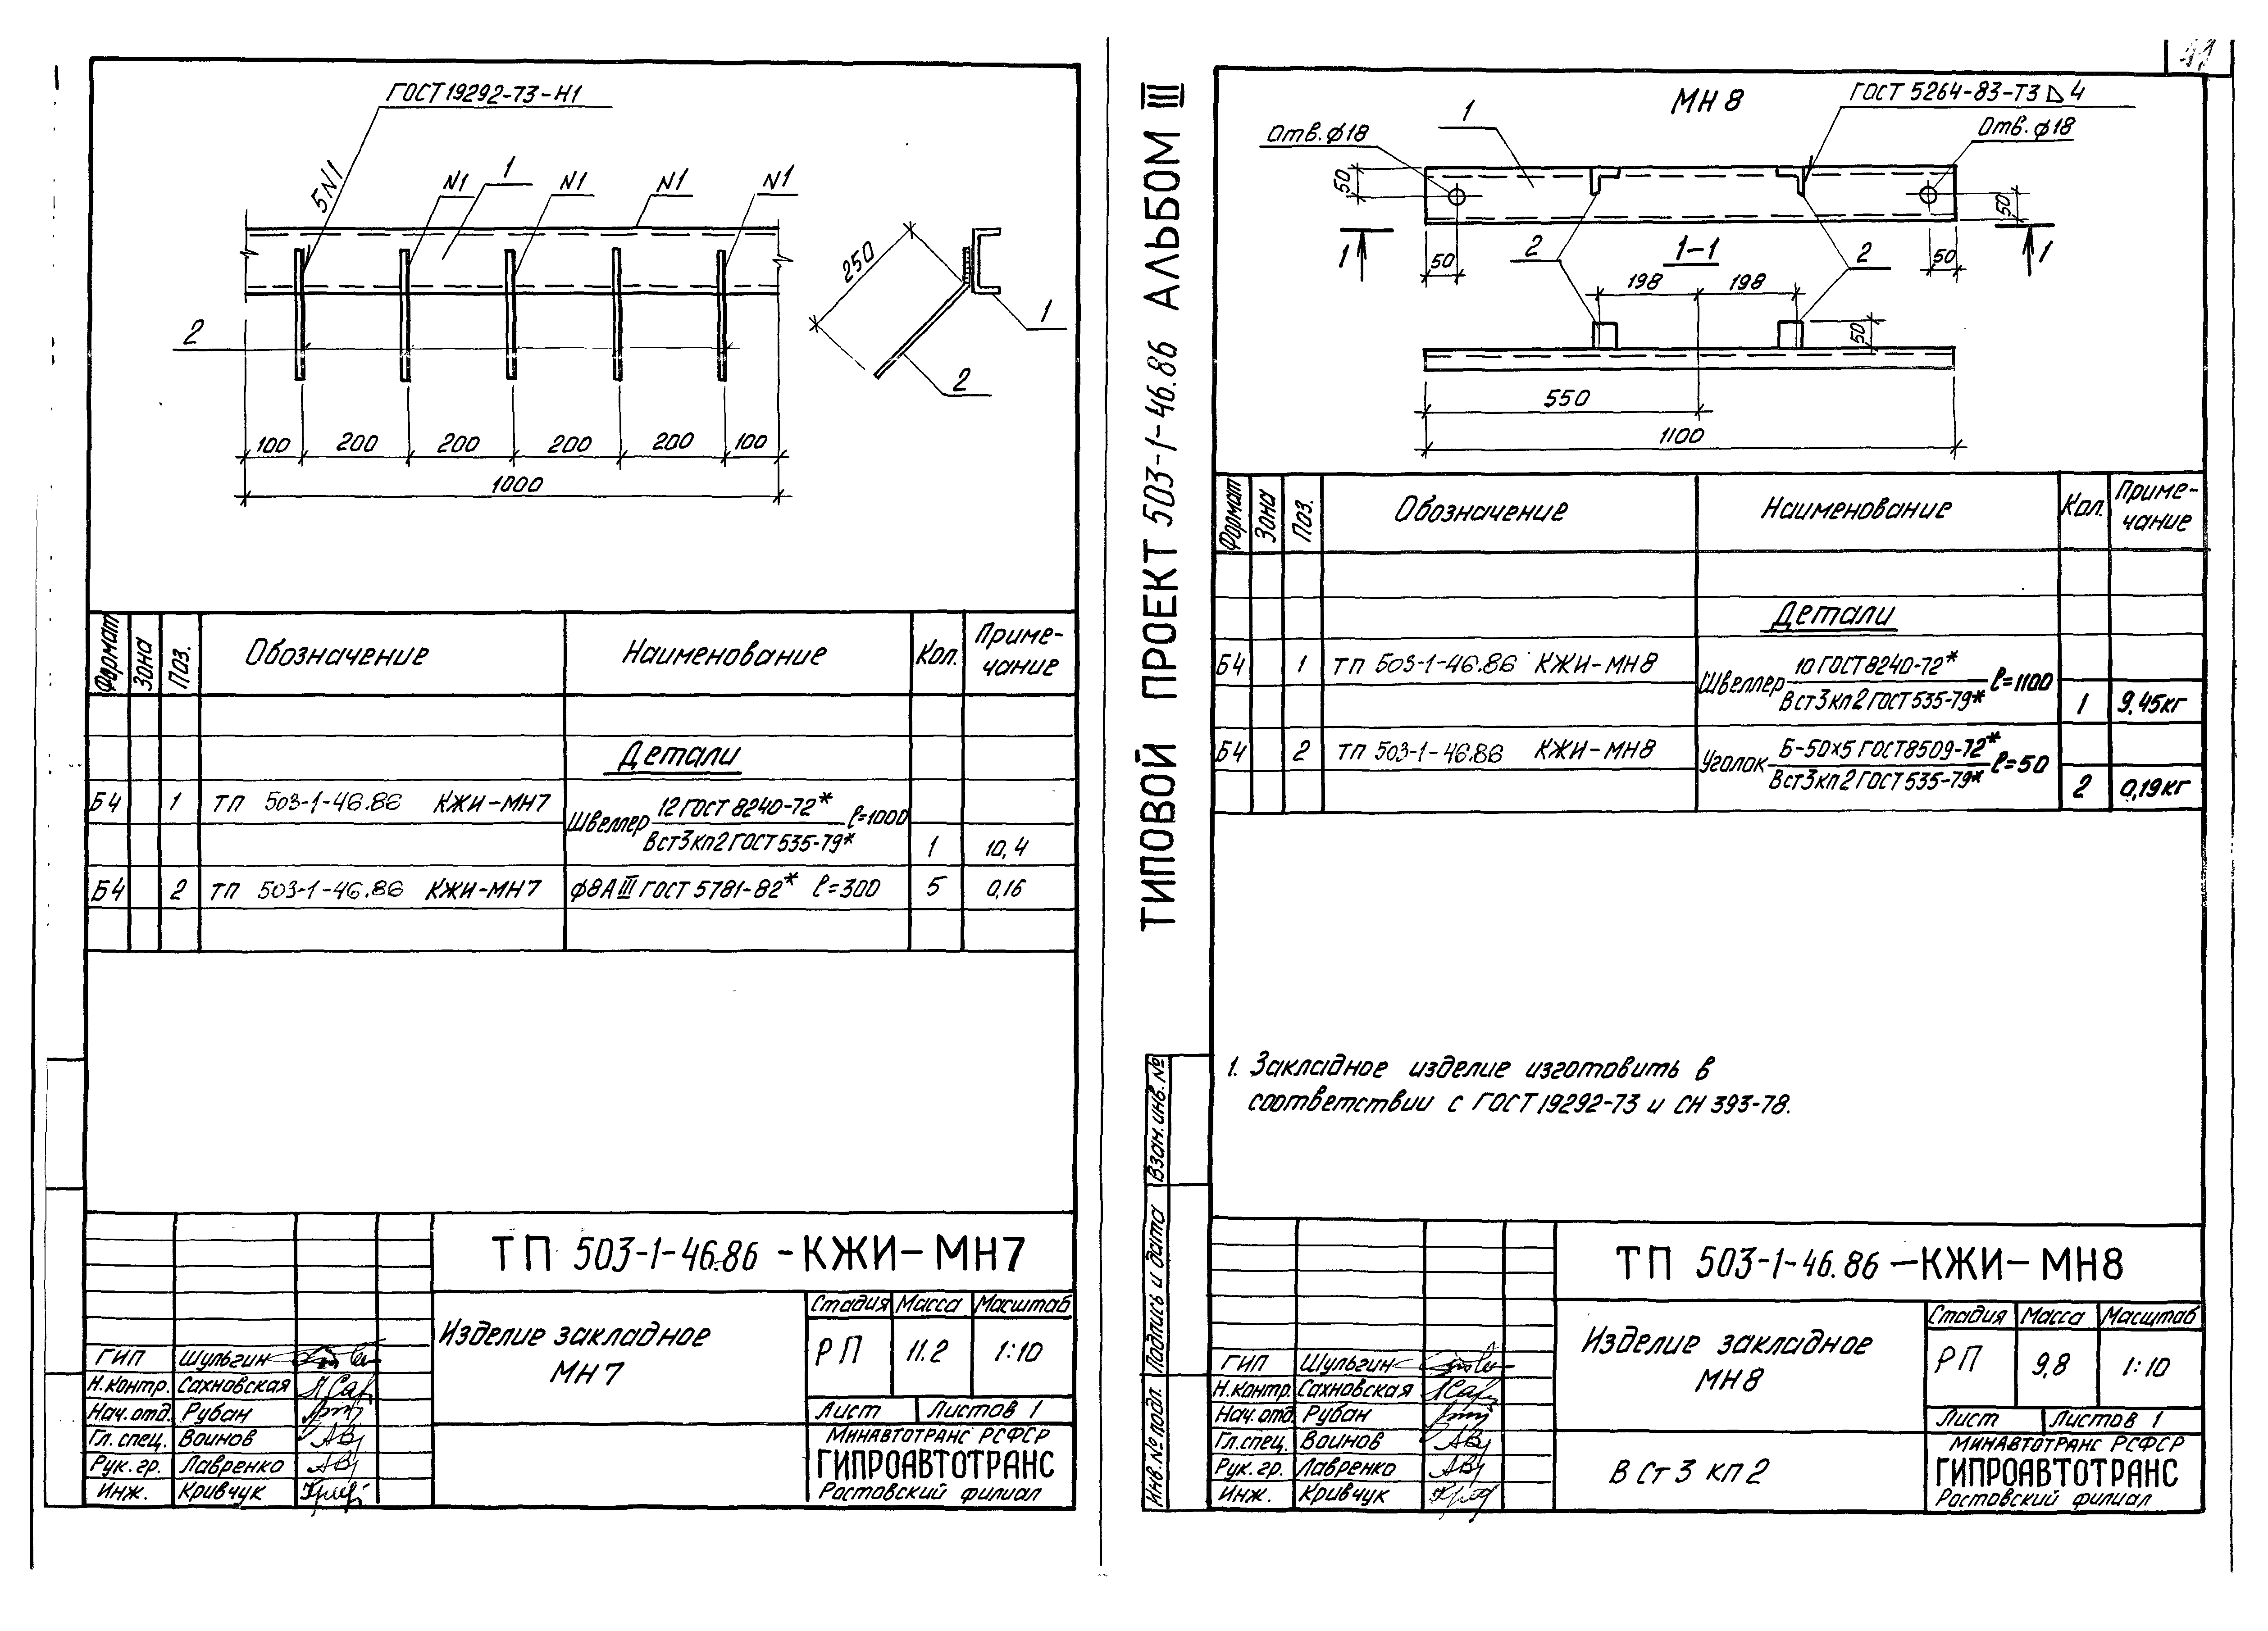 ГОСТ 19292-73-Н1
5N1
N1
1
N1
N1
N1
2
250
1
2
100 200 200 200 200 100
1000
Формат Зона Поз. Обозначение Наименование Кол. Примечание
Детали
Б4 1 ТП 503-1-46.86 КЖИ-МН7 Швеллер 12 ГОСТ 8240-72* / ВСт3кп2 ГОСТ 535-79* ℓ=1000 1 10,4
Б4 2 ТП 503-1-46.86 КЖИ-МН7 ф8АIII ГОСТ 5781-82* ℓ=300 5 0,16
ТП 503-1-46.86-КЖИ-МН7
Изделие закладное
МН7
Стадия Масса Масштаб
РП 11.2 1:10
Лист Листов 1
ГИП Шульгин
Н.контр. Сахновская
Нач.отд. Рубан
Гл.спец. Воинов
Рук.гр. Лавренко
Инж. Кривчук
Минавтотранс РСФСР
ГИПРОАВТОТРАНС
Ростовский филиал
ТИПОВОЙ ПРОЕКТ 503-1-46.86 АЛЬБОМ III
МН8
ГОСТ 5264-83-Т3⊿4
1
Отв.ф18
Отв.ф18
50
50
1
50
2
1-1
2
50
1
198 198
50
550
1100
Формат Зона Поз. Обозначение Наименование Кол. Примечание
Детали
Б4 1 ТП 503-1-46.86 КЖИ-МН8 Швеллер 10 ГОСТ 8240-72* / ВСт3кп2 ГОСТ 535-79* ℓ=1100 1 9,45кг
Б4 2 ТП 503-1-46.86 КЖИ-МН8 Уголок Б-50х5 ГОСТ 8509-72* / ВСт3кп2 ГОСТ 535-79* ℓ=50 2 0,19кг
1. Закладное изделие изготовить в
соответствии с ГОСТ 19292-73 и СН 393-78.
Взам.инв.№
Подпись и дата
Инв.№ подл.
ТП 503-1-46.86-КЖИ-МН8
Изделие закладное
МН8
Стадия Масса Масштаб
РП 9,8 1:10
Лист Листов 1
ГИП Шульгин
Н.контр. Сахновская
Нач.отд. Рубан
Гл.спец. Воинов
Рук.гр. Лавренко
Инж. Кривчук
ВСт3кп2
Минавтотранс РСФСР
ГИПРОАВТОТРАНС
Ростовский филиал